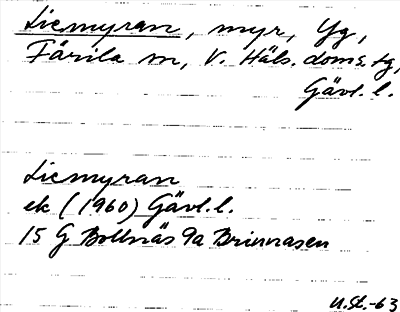 Liemyran, myr, Yg,
Färila sn, V. Häls. doms. tg,
Gävl. l.
Liemyran
ek (1960) Gävl. l.
15 G Bollnäs 9a Brinnåsen
U.St.-63